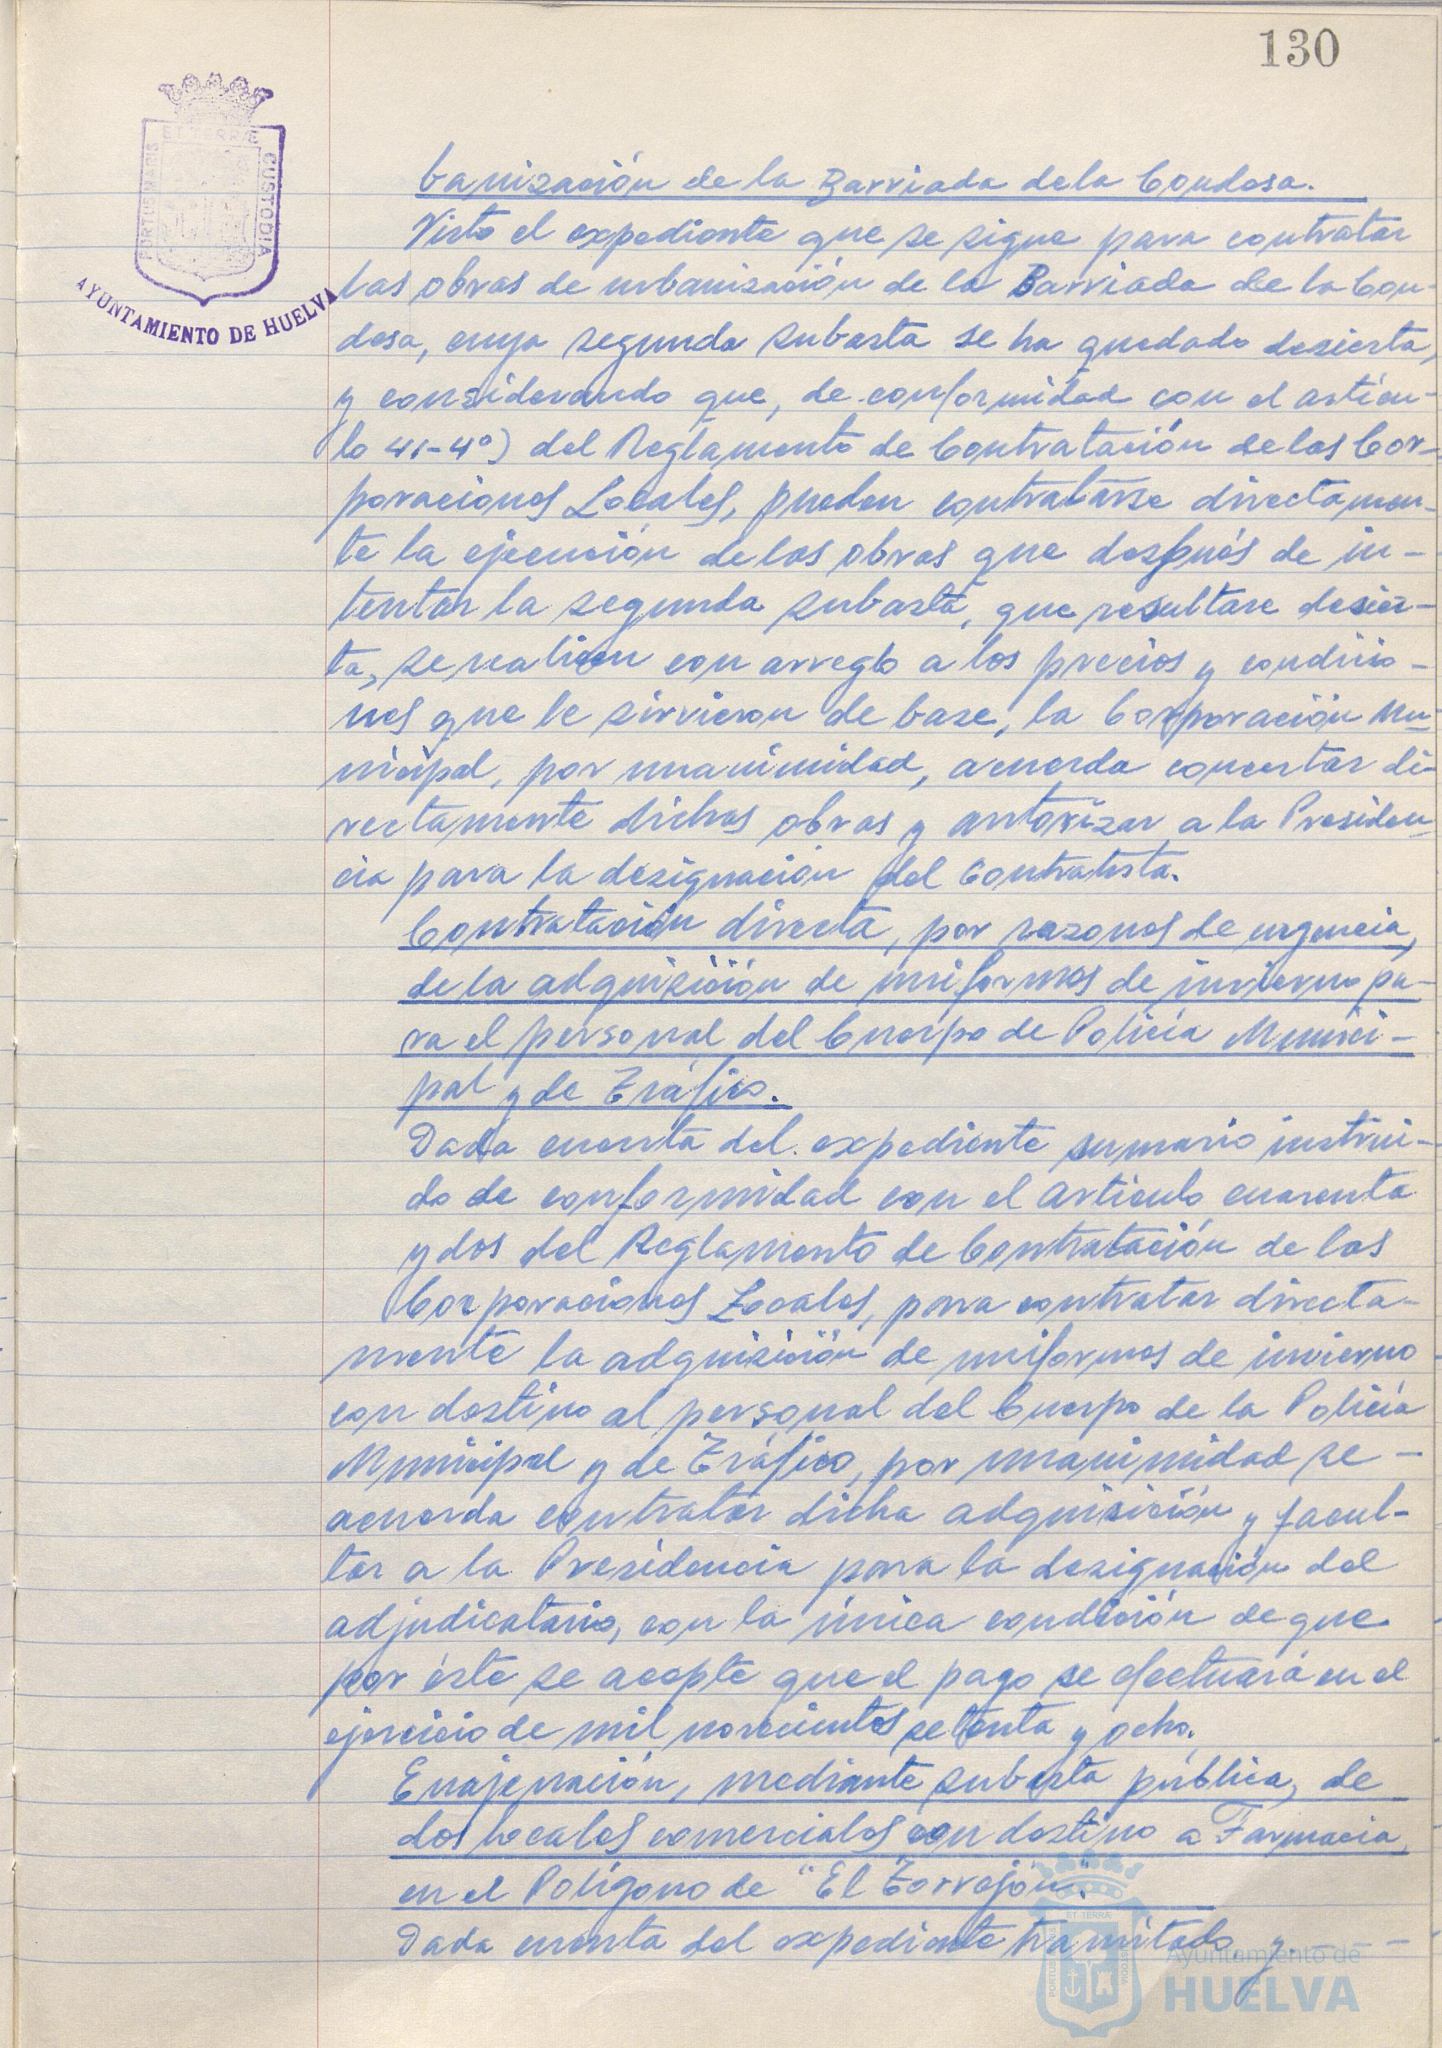 130
ET TERRÆ
PORTUS MARIS
CUSTODIA
AYUNTAMIENTO DE HUELVA
banización de la Barriada de la Condesa.
Visto el expediente que se sigue para contratar
las obras de urbanización de la Barriada de la Con-
desa, cuya segunda subasta se ha quedado desierta,
y considerando que, de conformidad con el artícu-
lo 41-4º) del Reglamento de Contratación de las Cor-
poraciones Locales, pueden contratarse directamen-
te la ejecución de las obras que después de in-
tentar la segunda subasta, que resultare desier-
ta, se realicen con arreglo a los precios y condicio-
nes que le sirvieron de base, la Corporación Mu-
nicipal, por unanimidad, acuerda concertar di-
rectamente dichas obras y autorizar a la Presiden-
cia para la designación del Contratista.
Contratación directa, por razones de urgencia,
de la adquisición de uniformes de invierno pa-
ra el personal del Cuerpo de Policía Munici-
pal y de Tráfico.
Dada cuenta del expediente sumario instrui-
do de conformidad con el artículo cuarenta
y dos del Reglamento de Contratación de las
Corporaciones Locales, para contratar directa-
mente la adquisición de uniformes de invierno
con destino al personal del Cuerpo de la Policía
Municipal y de Tráfico, por unanimidad se-
acuerda contratar dicha adquisición y facul-
tar a la Presidencia para la designación del
adjudicatario, con la única condición de que
por éste se acepte que el pago se efectuará en el
ejercicio de mil novecientos setenta y ocho.
Enajenación, mediante subasta pública, de
dos locales comerciales con destino a Farmacia,
en el Polígono de "El Torrejón."
Dada cuenta del expediente tramitado, y - - -
Ayuntamiento de
HUELVA